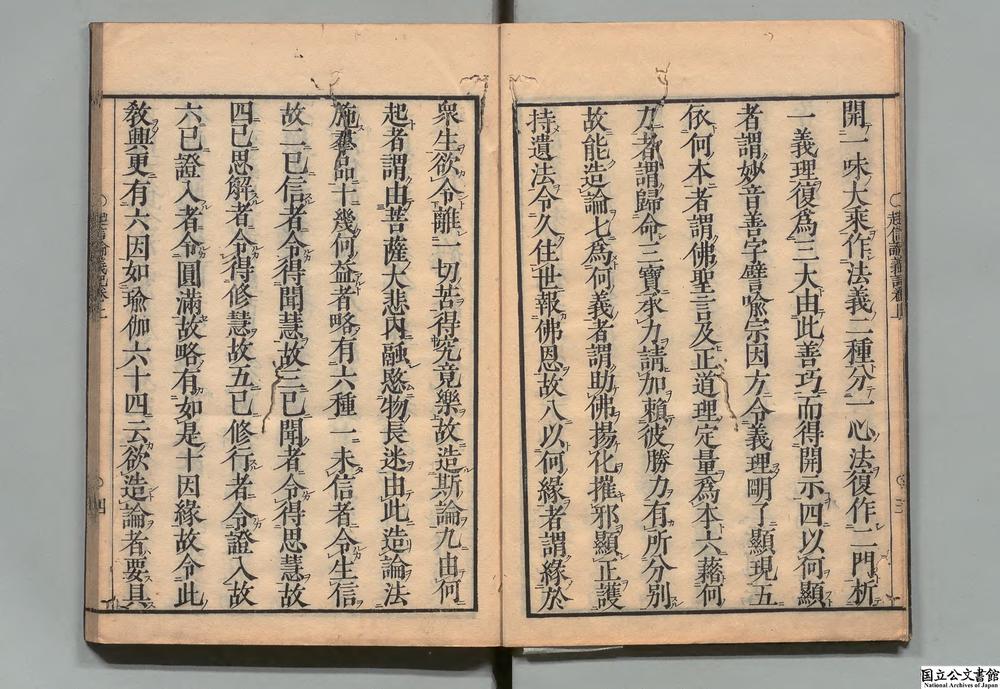 開一味大乘作法義二種分一心法復作二門析
一義理復爲三大由此善巧而得開示四以何顯
者謂妙音善字譬喩宗因方令義理明了顯現五
依何本者謂佛聖言及正道理定量爲本六藉何
力者謂歸命三寶承力請加賴彼勝力有所分別
故能造論七爲何義者謂助佛揚化摧邪顯正護
持遺法令久住世報佛恩故八以何緣者謂緣於
起信論義記卷上
三
衆生欲令離一切苦得究竟樂故造斯論九由何
起者謂由菩薩大悲内融愍物長迷由此造論法
施羣品十幾何益者略有六種一未信者令生信
故二已信者令得聞慧故三已聞者令得思慧故
四已思解者令得修慧故五已修行者令證入故
六已證入者令圓滿故略有如是十因緣故令此
敎興更有六因如瑜伽六十四云欲造論者要具
起信論義記卷上
四
国立公文書館
National Archives of Japan